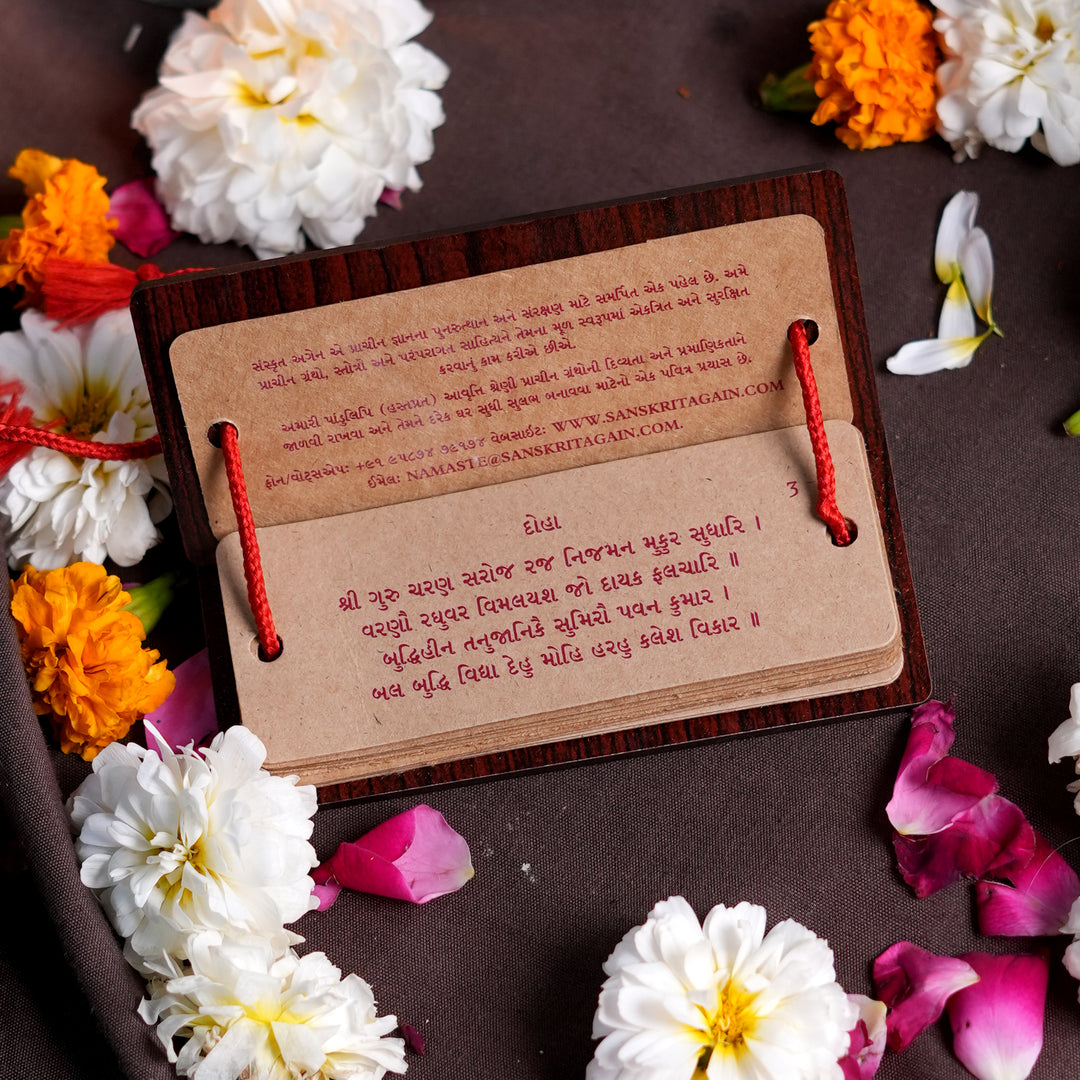 સંસ્કૃત અગેન એ પ્રાચીન જ્ઞાનના પુનરુત્થાન અને સંરક્ષણ માટે સમર્પિત એક પહેલ છે. અમે
પ્રાચીન ગ્રંથો, સ્તોત્રો અને પરંપરાગત સાહિત્યને તેમના મૂળ સ્વરૂપમાં એકત્રિત અને સુરક્ષિત
કરવાનું કામ કરીએ છીએ.
અમારી પાંડુલિપિ (હસ્તપ્રત) આવૃત્તિ શ્રેણી પ્રાચીન ગ્રંથોની દિવ્યતા અને પ્રમાણિકતાને
જાળવી રાખવા અને તેમને દરેક ઘર સુધી સુલભ બનાવવા માટેનો એક પવિત્ર પ્રયાસ છે.
ફોન/વૉટ્સએપ: +૯૧ ૯૫૮૭૪ ૭૯૧૭૪ વેબસાઇટ: WWW.SANSKRITAGAIN.COM
ઈમેલ: NAMASTE@SANSKRITAGAIN.COM.
3
દોહા
શ્રી ગુરુ ચરણ સરોજ રજ નિજમન મુકુર સુધારિ ।
વરણૌ રઘુવર વિમલયશ જો દાયક ફલચારિ ॥
બુદ્ધિહીન તનુજાનિકૈ સુમિરૌ પવન કુમાર ।
બલ બુદ્ધિ વિદ્યા દેહુ મોહિ હરહુ કલેશ વિકાર ॥